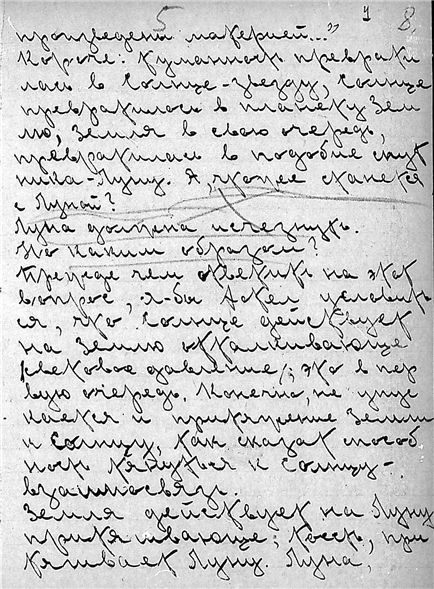 5 1 8.
произведены материей..."
Короче: Туманность преврати
лась в Солнце-звезду, Солнце
превратилось в планету Зем
лю, Земля в свою очередь,
превратилась в подобие спут
ника-Луну. А, что же станется
с Луной?
Луна должна исчезнуть.
Но каким образом?
Прежде чем ответить на этот
вопрос, я-бы хотел условить
ся, что Солнце действует
на Землю отталкивающе
световое давление/; это в пер
вую очередь. Конечно, не упус
кается и притяжение Земли
к Солнцу, как сказать способ
ность тянуться к Солнцу-
взаимосвязь.
Земля действует на Луну
притягивающе; то есть, при
тягивает Луну. Луна,